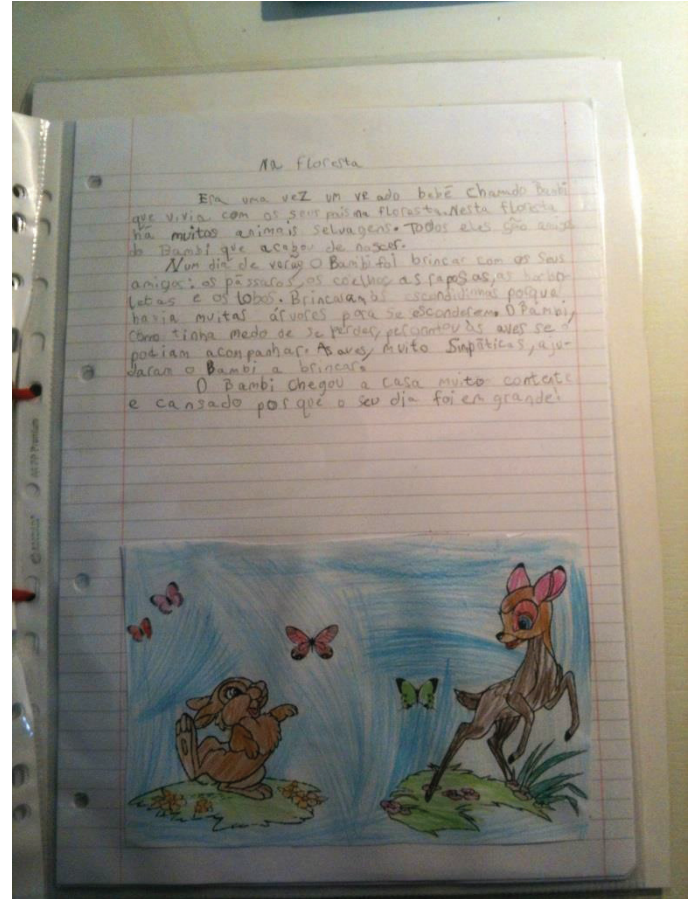 Na Floresta
Era uma vez um veado bebé chamado Bambi
que vivia com os seus pais na floresta. Nesta floresta
há muitos animais selvagens. Todos eles são amigos
do Bambi que acabou de nascer.
Num dia de verão o Bambi foi brincar com os seus
amigos: os pássaros, os coelhos, as raposas, as borbo-
letas e os lobos. Brincavam às escondidinhas porque
havia muitas árvores para se esconderem. O Bambi,
como tinha medo de se perder, perguntou às aves se o
podiam acompanhar. As aves, muito simpáticas, aju-
daram o Bambi a brincar.
O Bambi chegou a casa muito contente
e cansado porque o seu dia foi em grande.